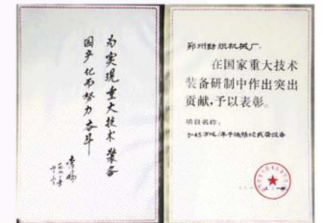 为实现重大技术装备
国产化而努力奋斗
李鹏
郑州纺织机械厂：
在国家重大技术
装备研制中作出突出
贡献，予以表彰。
项目名称：